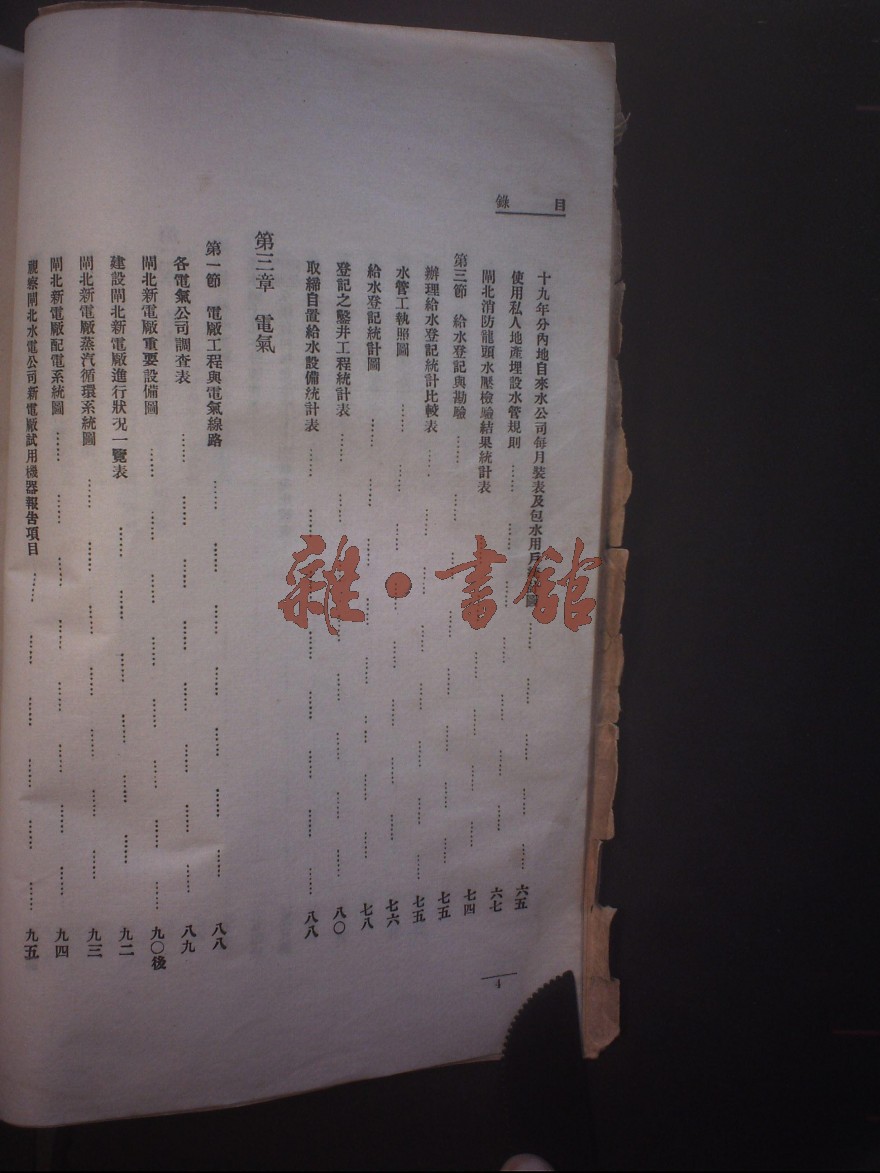 目錄
十九年分內地自來水公司每月裝表及包水用戶 六五
使用私人地產埋設水管規則 六七
閘北消防龍頭水壓檢驗結果統計表 七四
第三節 給水登記與勘驗 七五
辦理給水登記統計比較表 七五
水管工執照圖 七六
給水登記統計圖 七八
登記之鑿井工程統計表 八〇
取締自置給水設備統計表 八八
第三章 電氣
第一節 電廠工程與電氣線路 八八
各電氣公司調查表 八九
閘北新電廠重要設備圖 九〇後
建設閘北新電廠進行狀況一覽表 九二
閘北新電廠蒸汽循環系統圖 九三
閘北新電廠配電系統圖 九四
視察閘北水電公司新電廠試用機器報告項目 九五
雜·書館